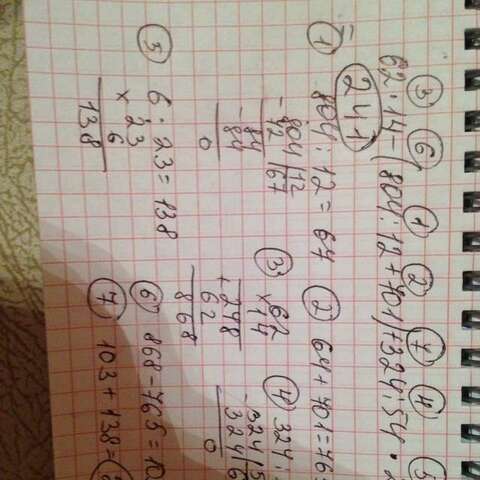 ③ ⑥ ① ② ⑦ ④ ⑤
62·14-(804:12+701)+324:54·2
=241
① 804:12=64 ② 64+701=765
-804|12
72|67
-84
84
0
③ ×62
14
+248
62
868
④ 324:
-324|5
324|6
0
⑤ 6·23=138
×23
6
138
⑥ 868-765=10
⑦ 103+138=